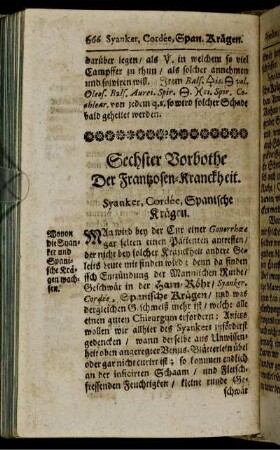 666 Syanker, Cordée, Span. Krägen.
darüber legen / als V. in welchem so viel
Campffer zu thun / als solcher annehmen
und solviren will. Item Balf.
Oleos. Balf. Spir.
von jedem q. s. so wird solcher Schade
bald geheilet werden.
Sechster Vorbothe
Der Frantzosen-Kranckheit.
Syanker, Cordée, Spanische
Krägen.
Wovon
die Syan-
ker und
Spani-
sche Krä-
gen wach-
sen.
MAn wird bey der Cur einer Gonorrhœæ
gar selten einen Patienten antreffen /
der nicht bey solcher Kranckheit andere Ge-
leits Leute mit finden wird: denn da finden
sich Entzündung der Männlichen Ruthe /
Geschwär in der Harn-Röhr / Syanker,
Cordée, Spanische Krägen / und was
dergleichen Geschmeiß mehr ist / welche alle
einen guten Chirurgum erfordern: Anitzo
wollen wir allhier des Syankers införderst
gedencken / wann derselbe aus Unwissen-
heit oben angeregter Venus-Blätterlein übel
oder gar nicht curirt ist; so kommen endlich
an der inficirten Schaam / und Fleisch-
fressenden Feuchtigkeit / kleine runde Ge-
schwär